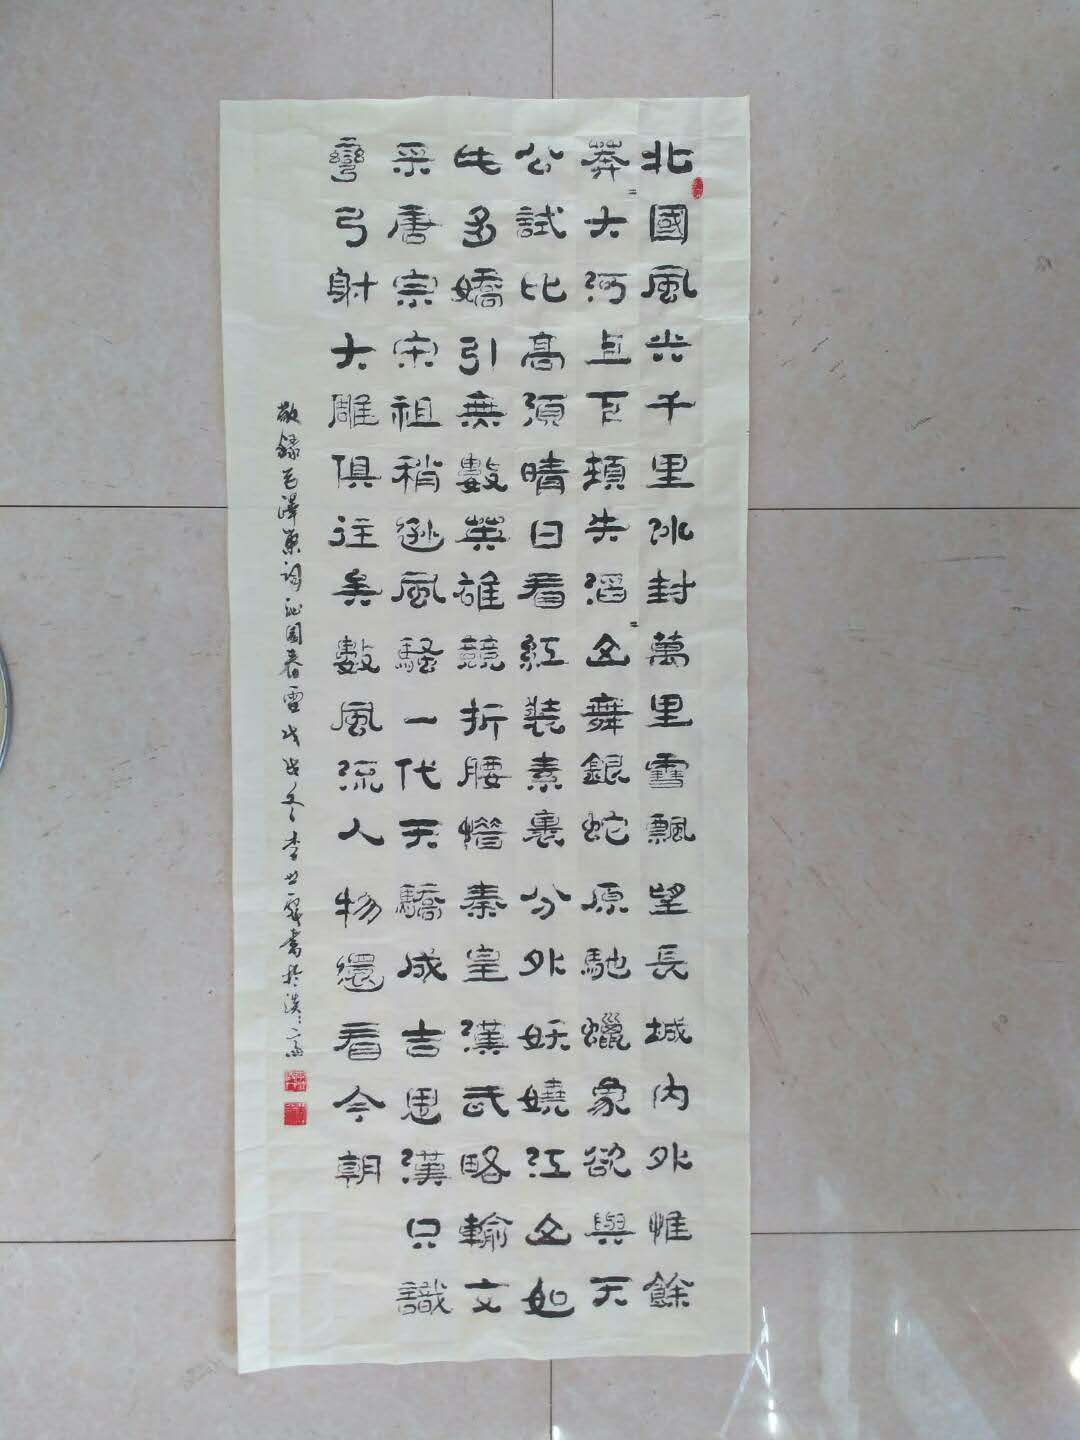 北國風光千里冰封萬里雪飄望長城內外惟餘
莽〻大河上下頓失滔〻山舞銀蛇原馳蠟象欲與天
公試比高須晴日看紅裝素裹分外妖嬈江山如
此多嬌引無數英雄競折腰惜秦皇漢武略輸文
采唐宗宋祖稍遜風騷一代天驕成吉思漢只識
彎弓射大雕俱往矣數風流人物還看今朝
敬錄毛澤東詞沁園春雪戊戌冬李世書於